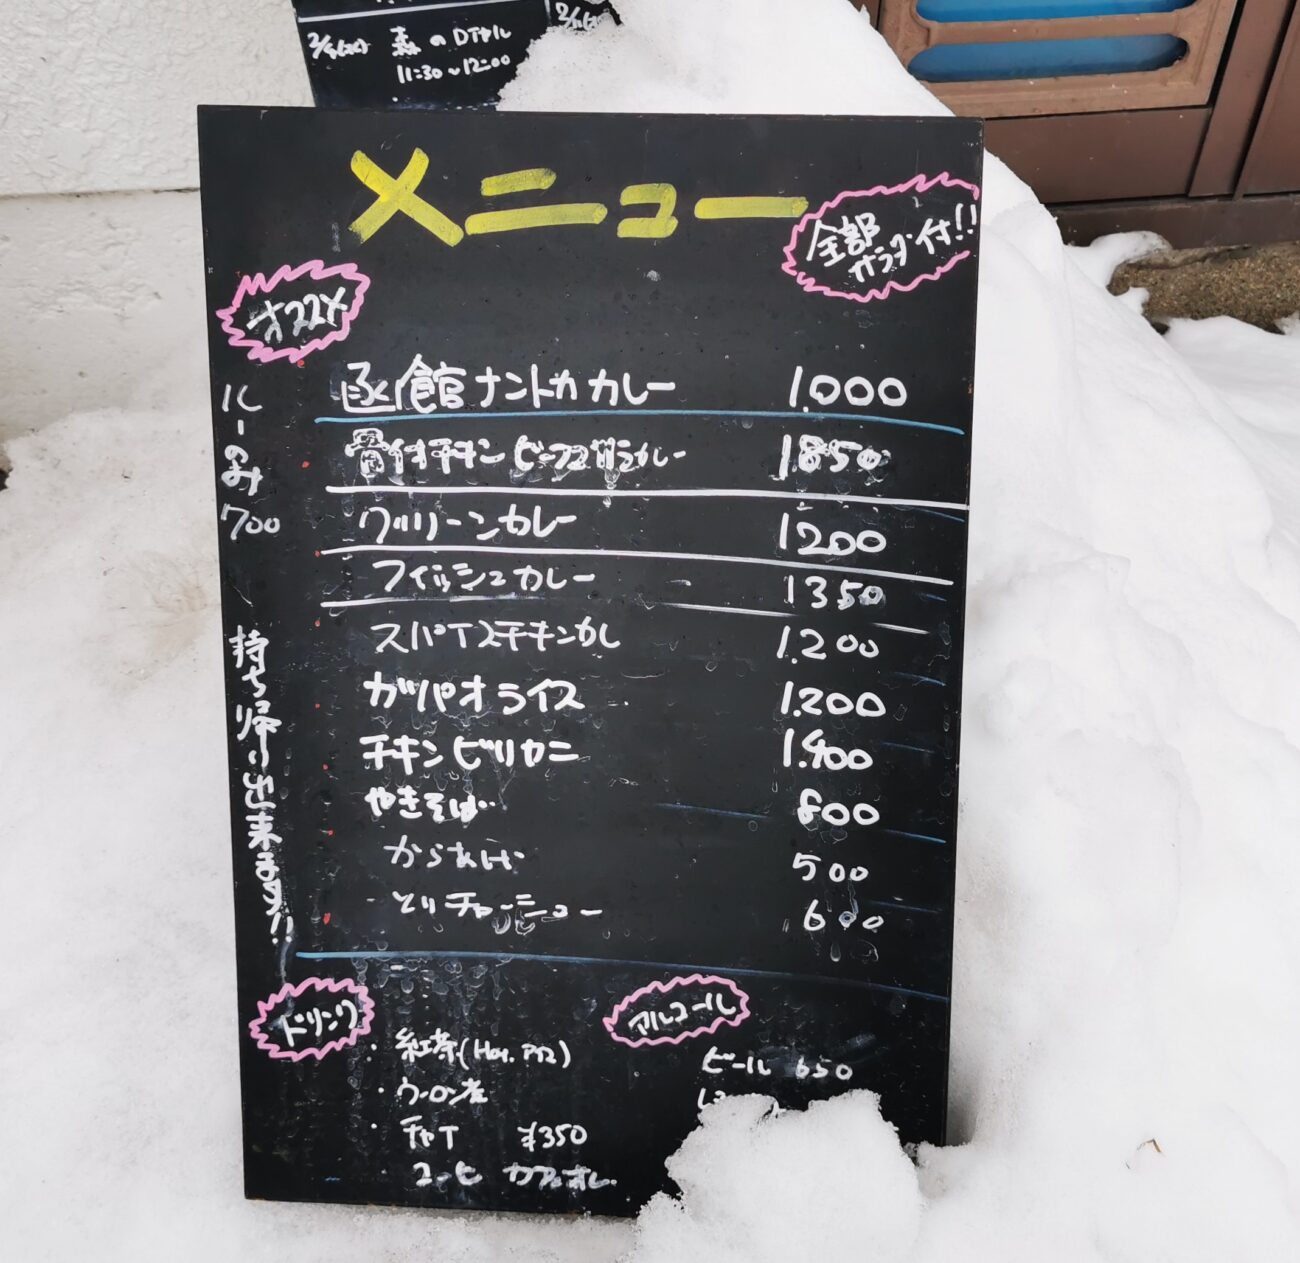 森のDTヤル
11:30~12:00
メニュー
全部
サラダ付!!
オススメ
函館ナントカカレー 1.000
骨付チキン カレー 1850
グリーンカレー 1200
フィッシュカレー 1350
スパイスチキンカレ 1.200
ガパオライス 1.200
チキンビリヤニ 1.400
やきそば 800
からあげ 500
とりチャーシュー 600
ルーのみ
700
持ち帰り出来ます!!
ドリンク
・紅茶(Hot. アイス)
・ウーロン茶
・チャイ ¥350
コーヒ カフェオレ
アルコール
ビール 650